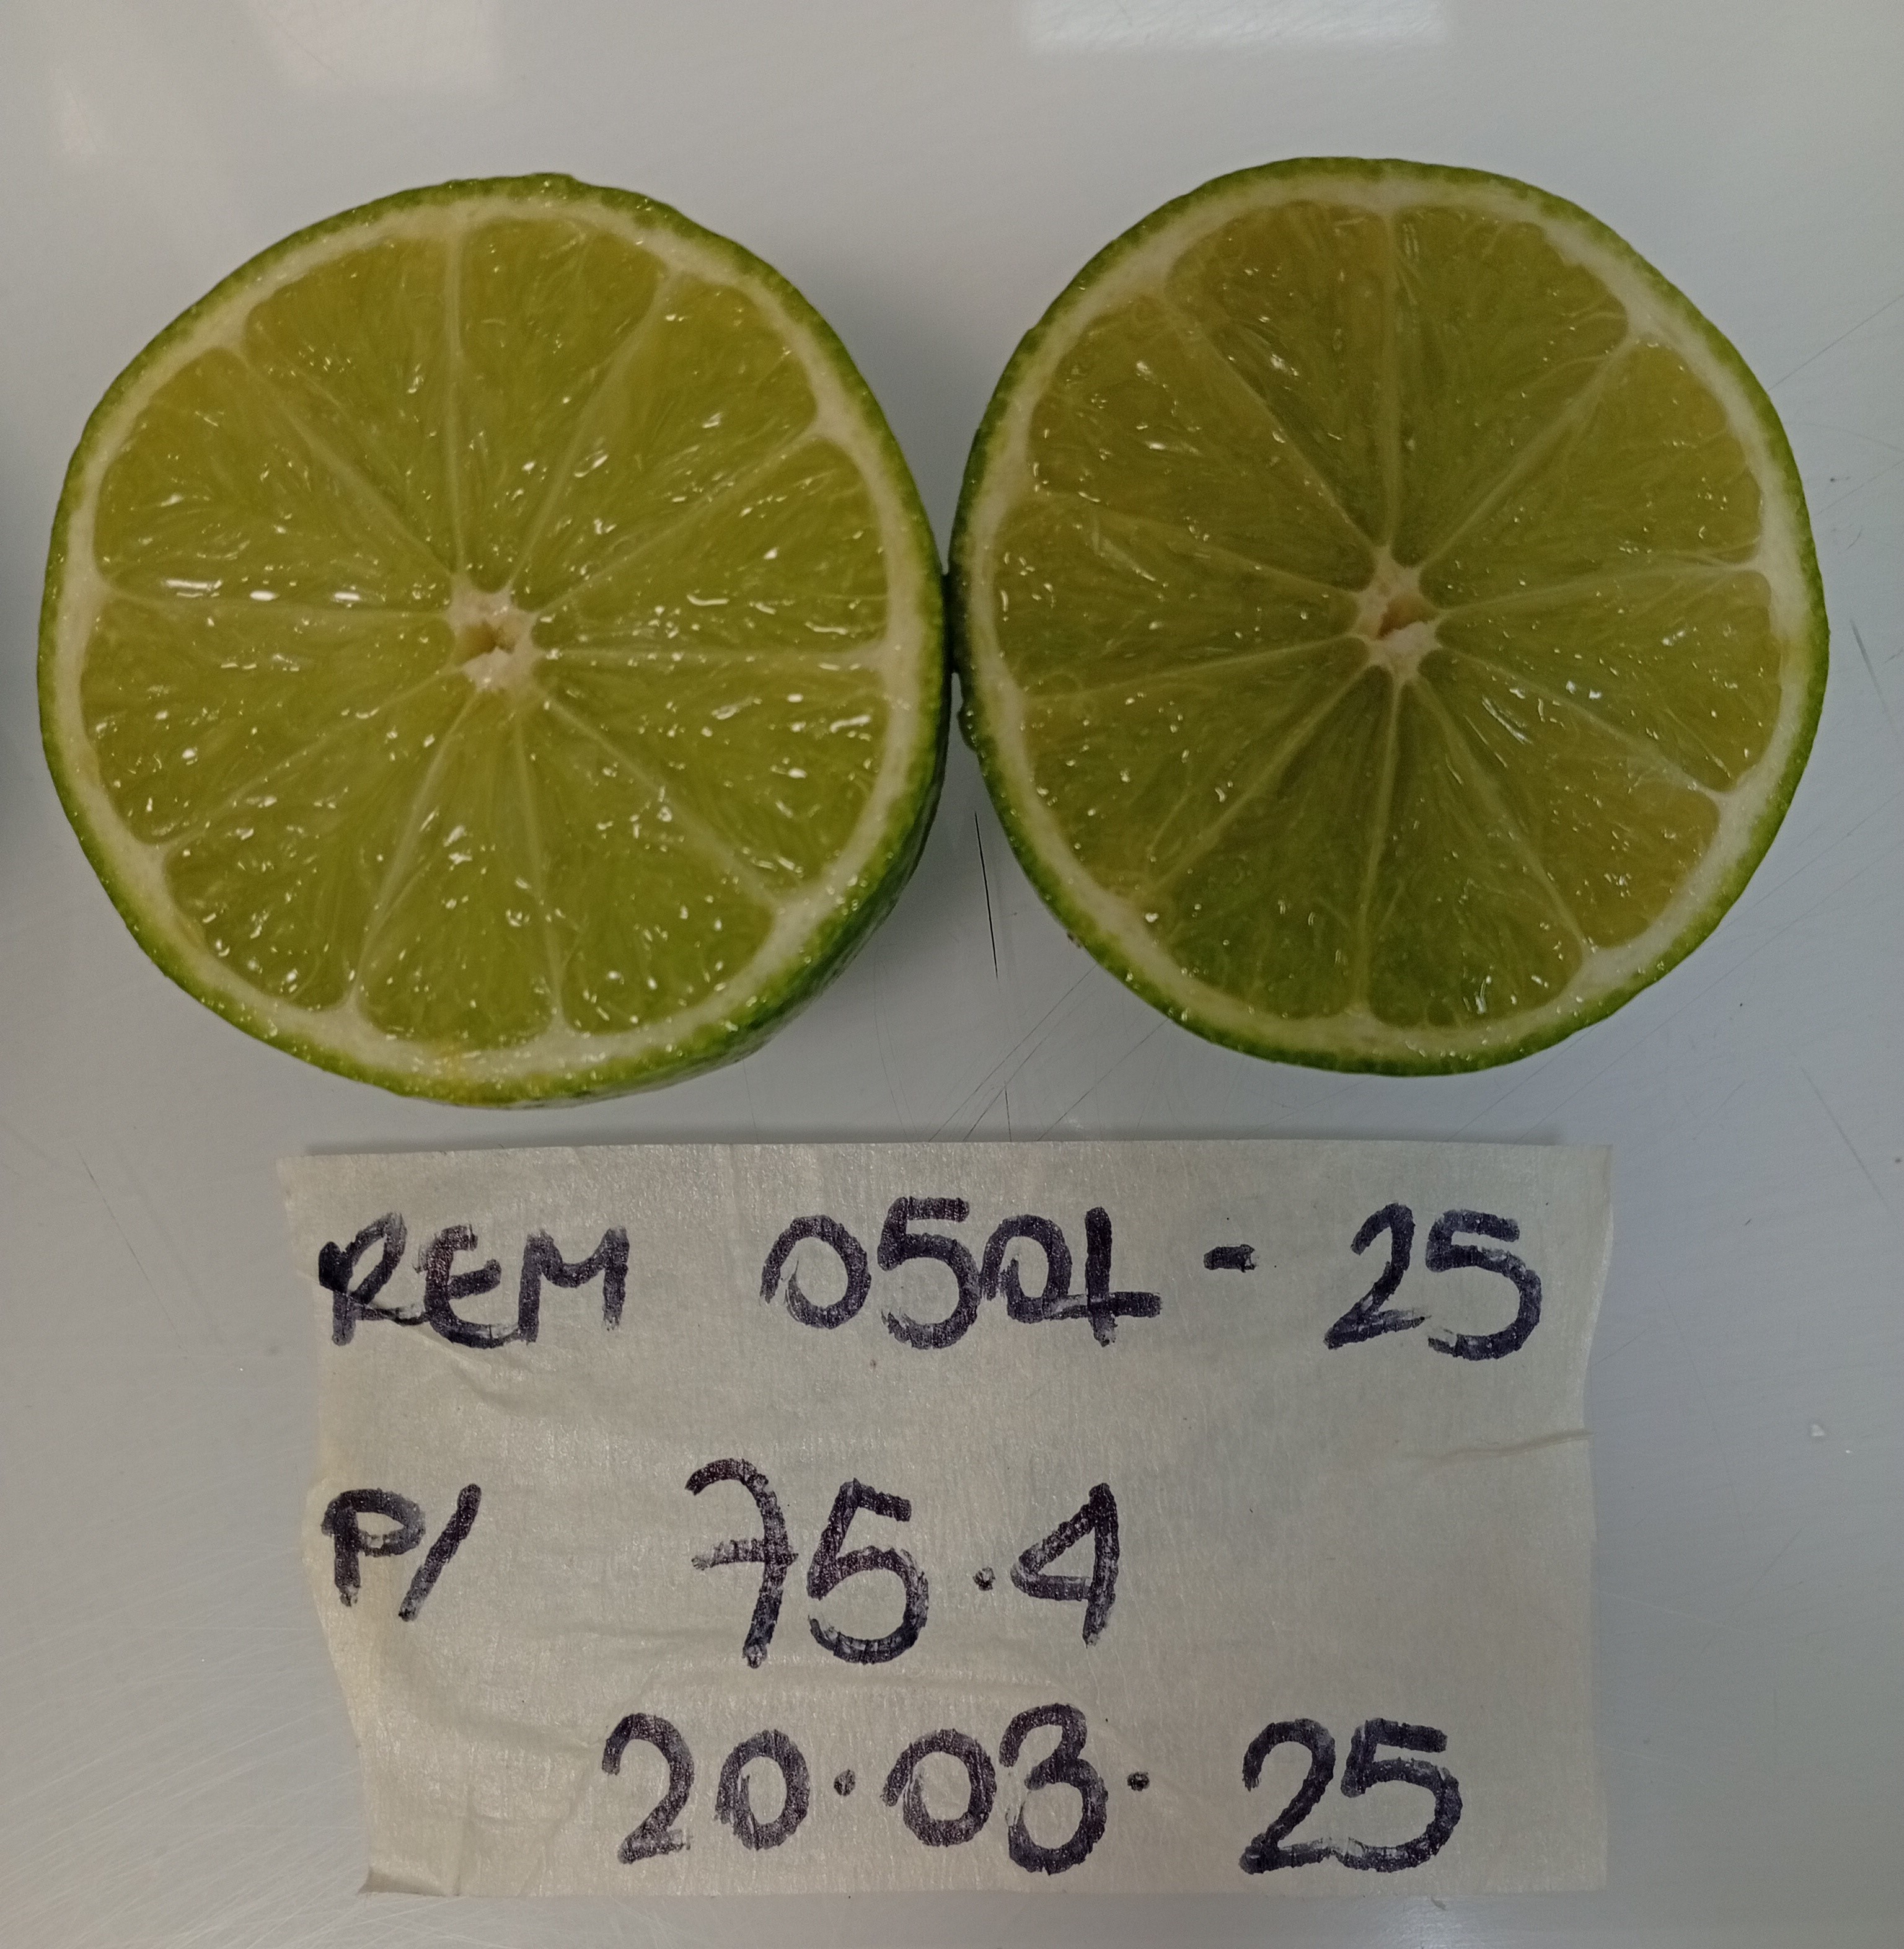 REM 0501 - 25
P/ 75.4
20.03.25